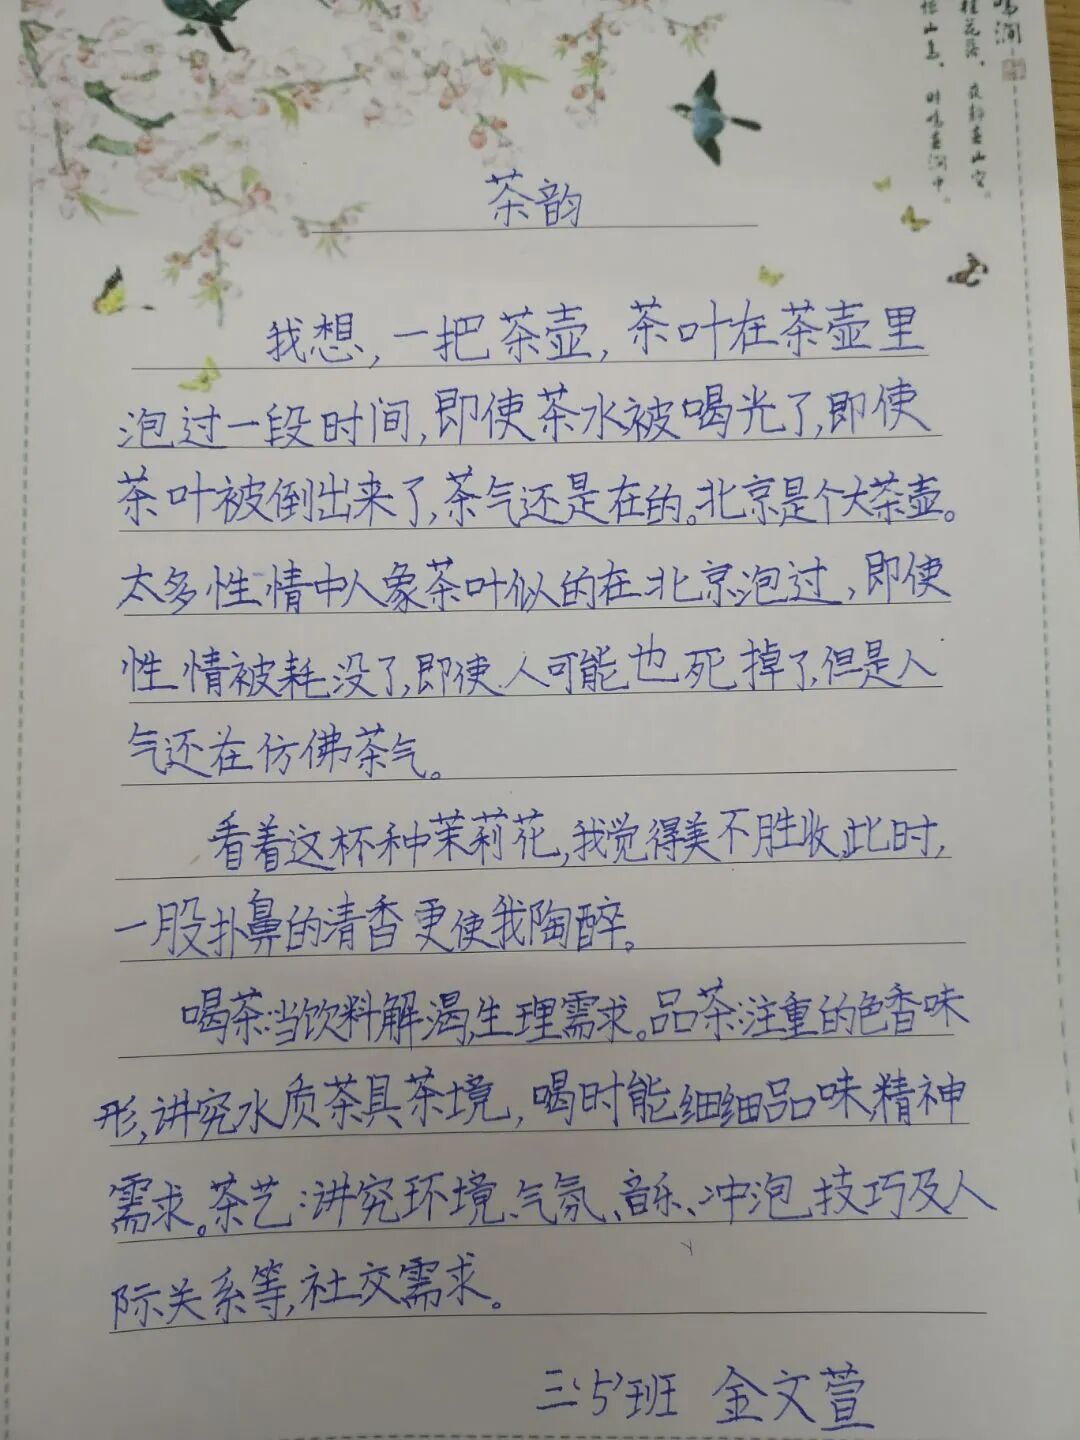 鸣涧
桂花落，夜静春山空。
惊山鸟，时鸣春涧中。
茶韵
我想，一把茶壶，茶叶在茶壶里
泡过一段时间，即使茶水被喝光了，即使
茶叶被倒出来了，茶气还是在的。北京是个大茶壶。
太多性情中人象茶叶似的在北京泡过，即使
性情被耗没了，即使人可能也死掉了，但是人
气还在仿佛茶气。
看着这杯种茉莉花，我觉得美不胜收，此时，
一股扑鼻的清香更使我陶醉。
喝茶：当饮料解渴，生理需求。品茶：注重的色香味
形，讲究水质茶具茶境，喝时能细细品味，精神
需求。茶艺：讲究环境、气氛、音乐、冲泡技巧及人
际关系等，社交需求。
三'5'班 金文萱